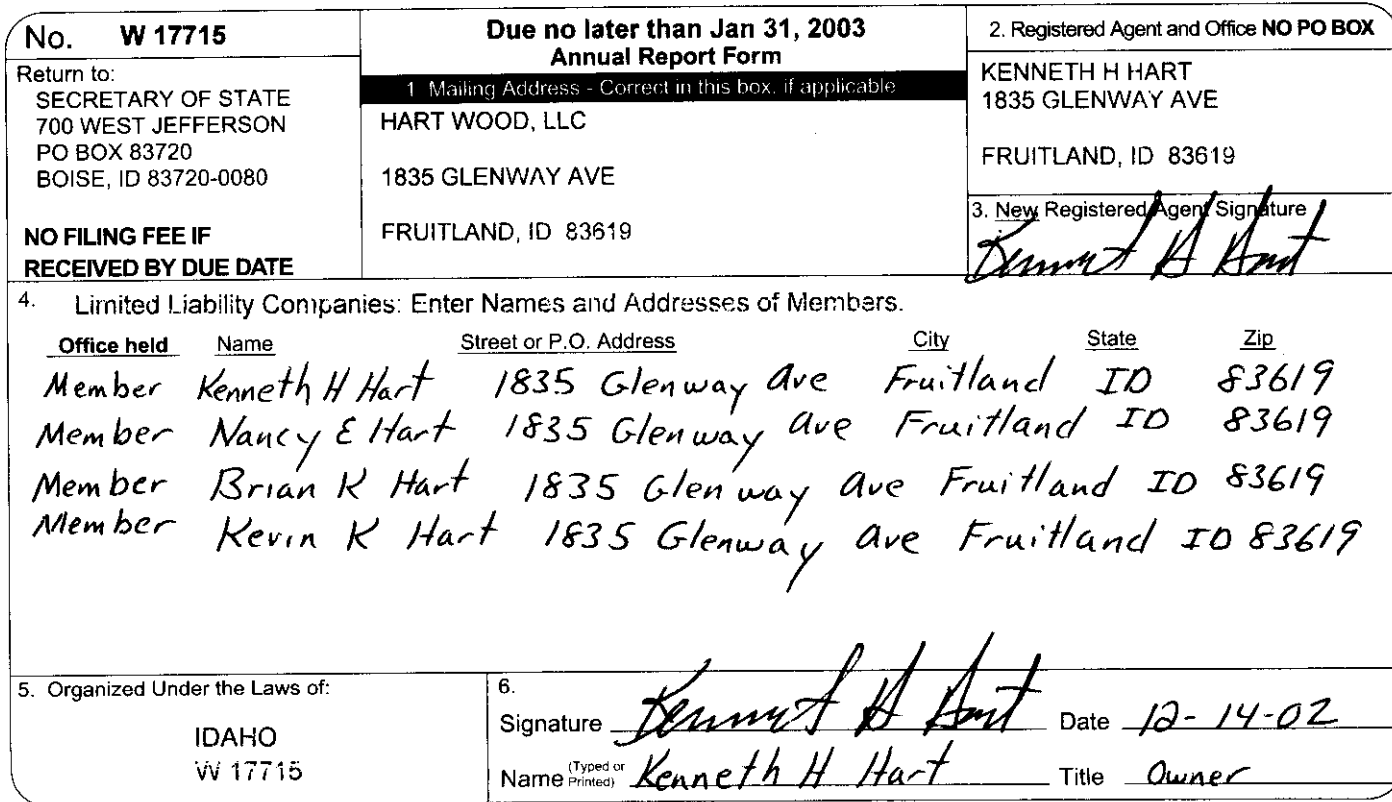 No. W 17715
Return to:
SECRETARY OF STATE
700 WEST JEFFERSON
PO BOX 83720
BOISE, ID 83720-0080
NO FILING FEE IF
RECEIVED BY DUE DATE
Due no later than Jan 31, 2003
Annual Report Form
1 Mailing Address - Correct in this box, if applicable
HART WOOD, LLC
1835 GLENWAY AVE
FRUITLAND, ID 83619
2. Registered Agent and Office NO PO BOX
KENNETH H HART
1835 GLENWAY AVE
FRUITLAND, ID 83619
3. New Registered Agent Signature
Kenneth H Hart
4. Limited Liability Companies: Enter Names and Addresses of Members.
Office held Name Street or P.O. Address City State Zip
Member Kenneth H Hart 1835 Glenway Ave Fruitland ID 83619
Member Nancy E Hart 1835 Glenway Ave Fruitland ID 83619
Member Brian K Hart 1835 Glenway Ave Fruitland ID 83619
Member Kevin K Hart 1835 Glenway Ave Fruitland ID 83619
5. Organized Under the Laws of:
IDAHO
W 17715
6.
Signature Kenneth H Hart Date 12-14-02
Name (Typed or Printed) Kenneth H Hart Title Owner